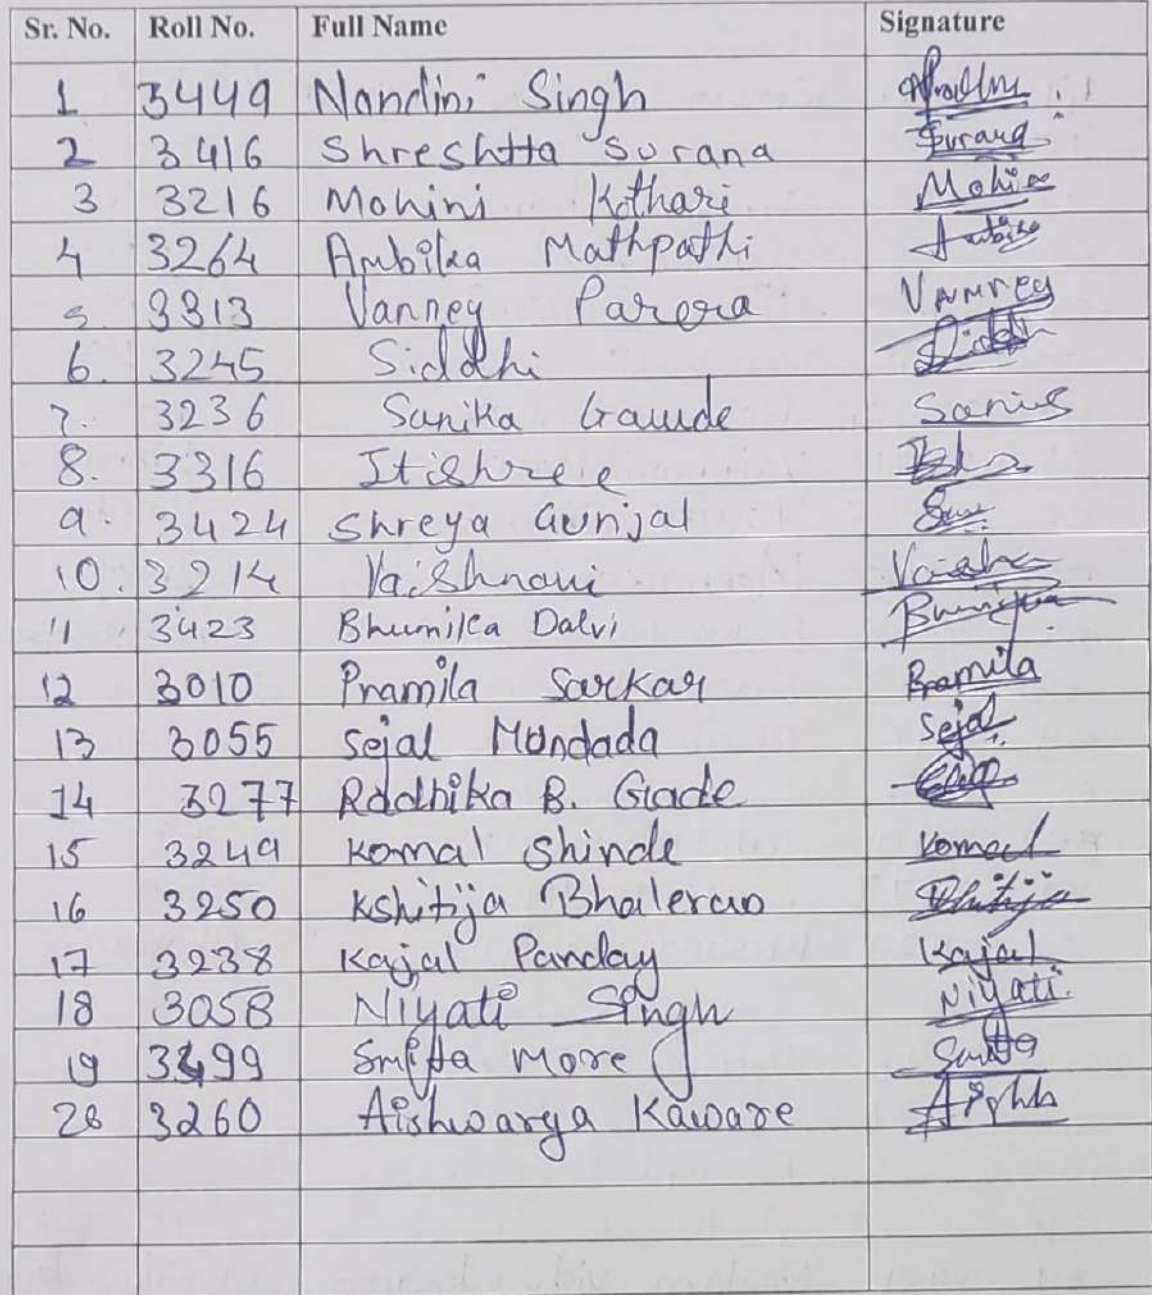 Sr. No. Roll No. Full Name Signature
1 3449 Nandini Singh
2 3416 Shreshtta Surana Surana
3 3216 Mohini Kothari Mohini
4 3264 Ambika Mathpathi Ambika
5. 3313 Vanney Parera Vanney
6. 3245 Siddhi Siddhi
7. 3236 Sanika Gawde
8. 3316 Itishree
9. 3424 Shreya Gunjal
10. 3214 Vaishnavi
11 3423 Bhumika Dalvi Bhumika
12 3010 Pramila Sarkar Pramila
13 3055 Sejal Mundada Sejal
14 3277 Radhika B. Gade
15 3249 Komal Shinde Komal
16 3250 Kshitija Bhalerao Kshitija
17 3238 Kajal Panday Kajal
18 3058 Niyati Singh Niyati
19 Smita More
20 3260 Aishwarya Kaware